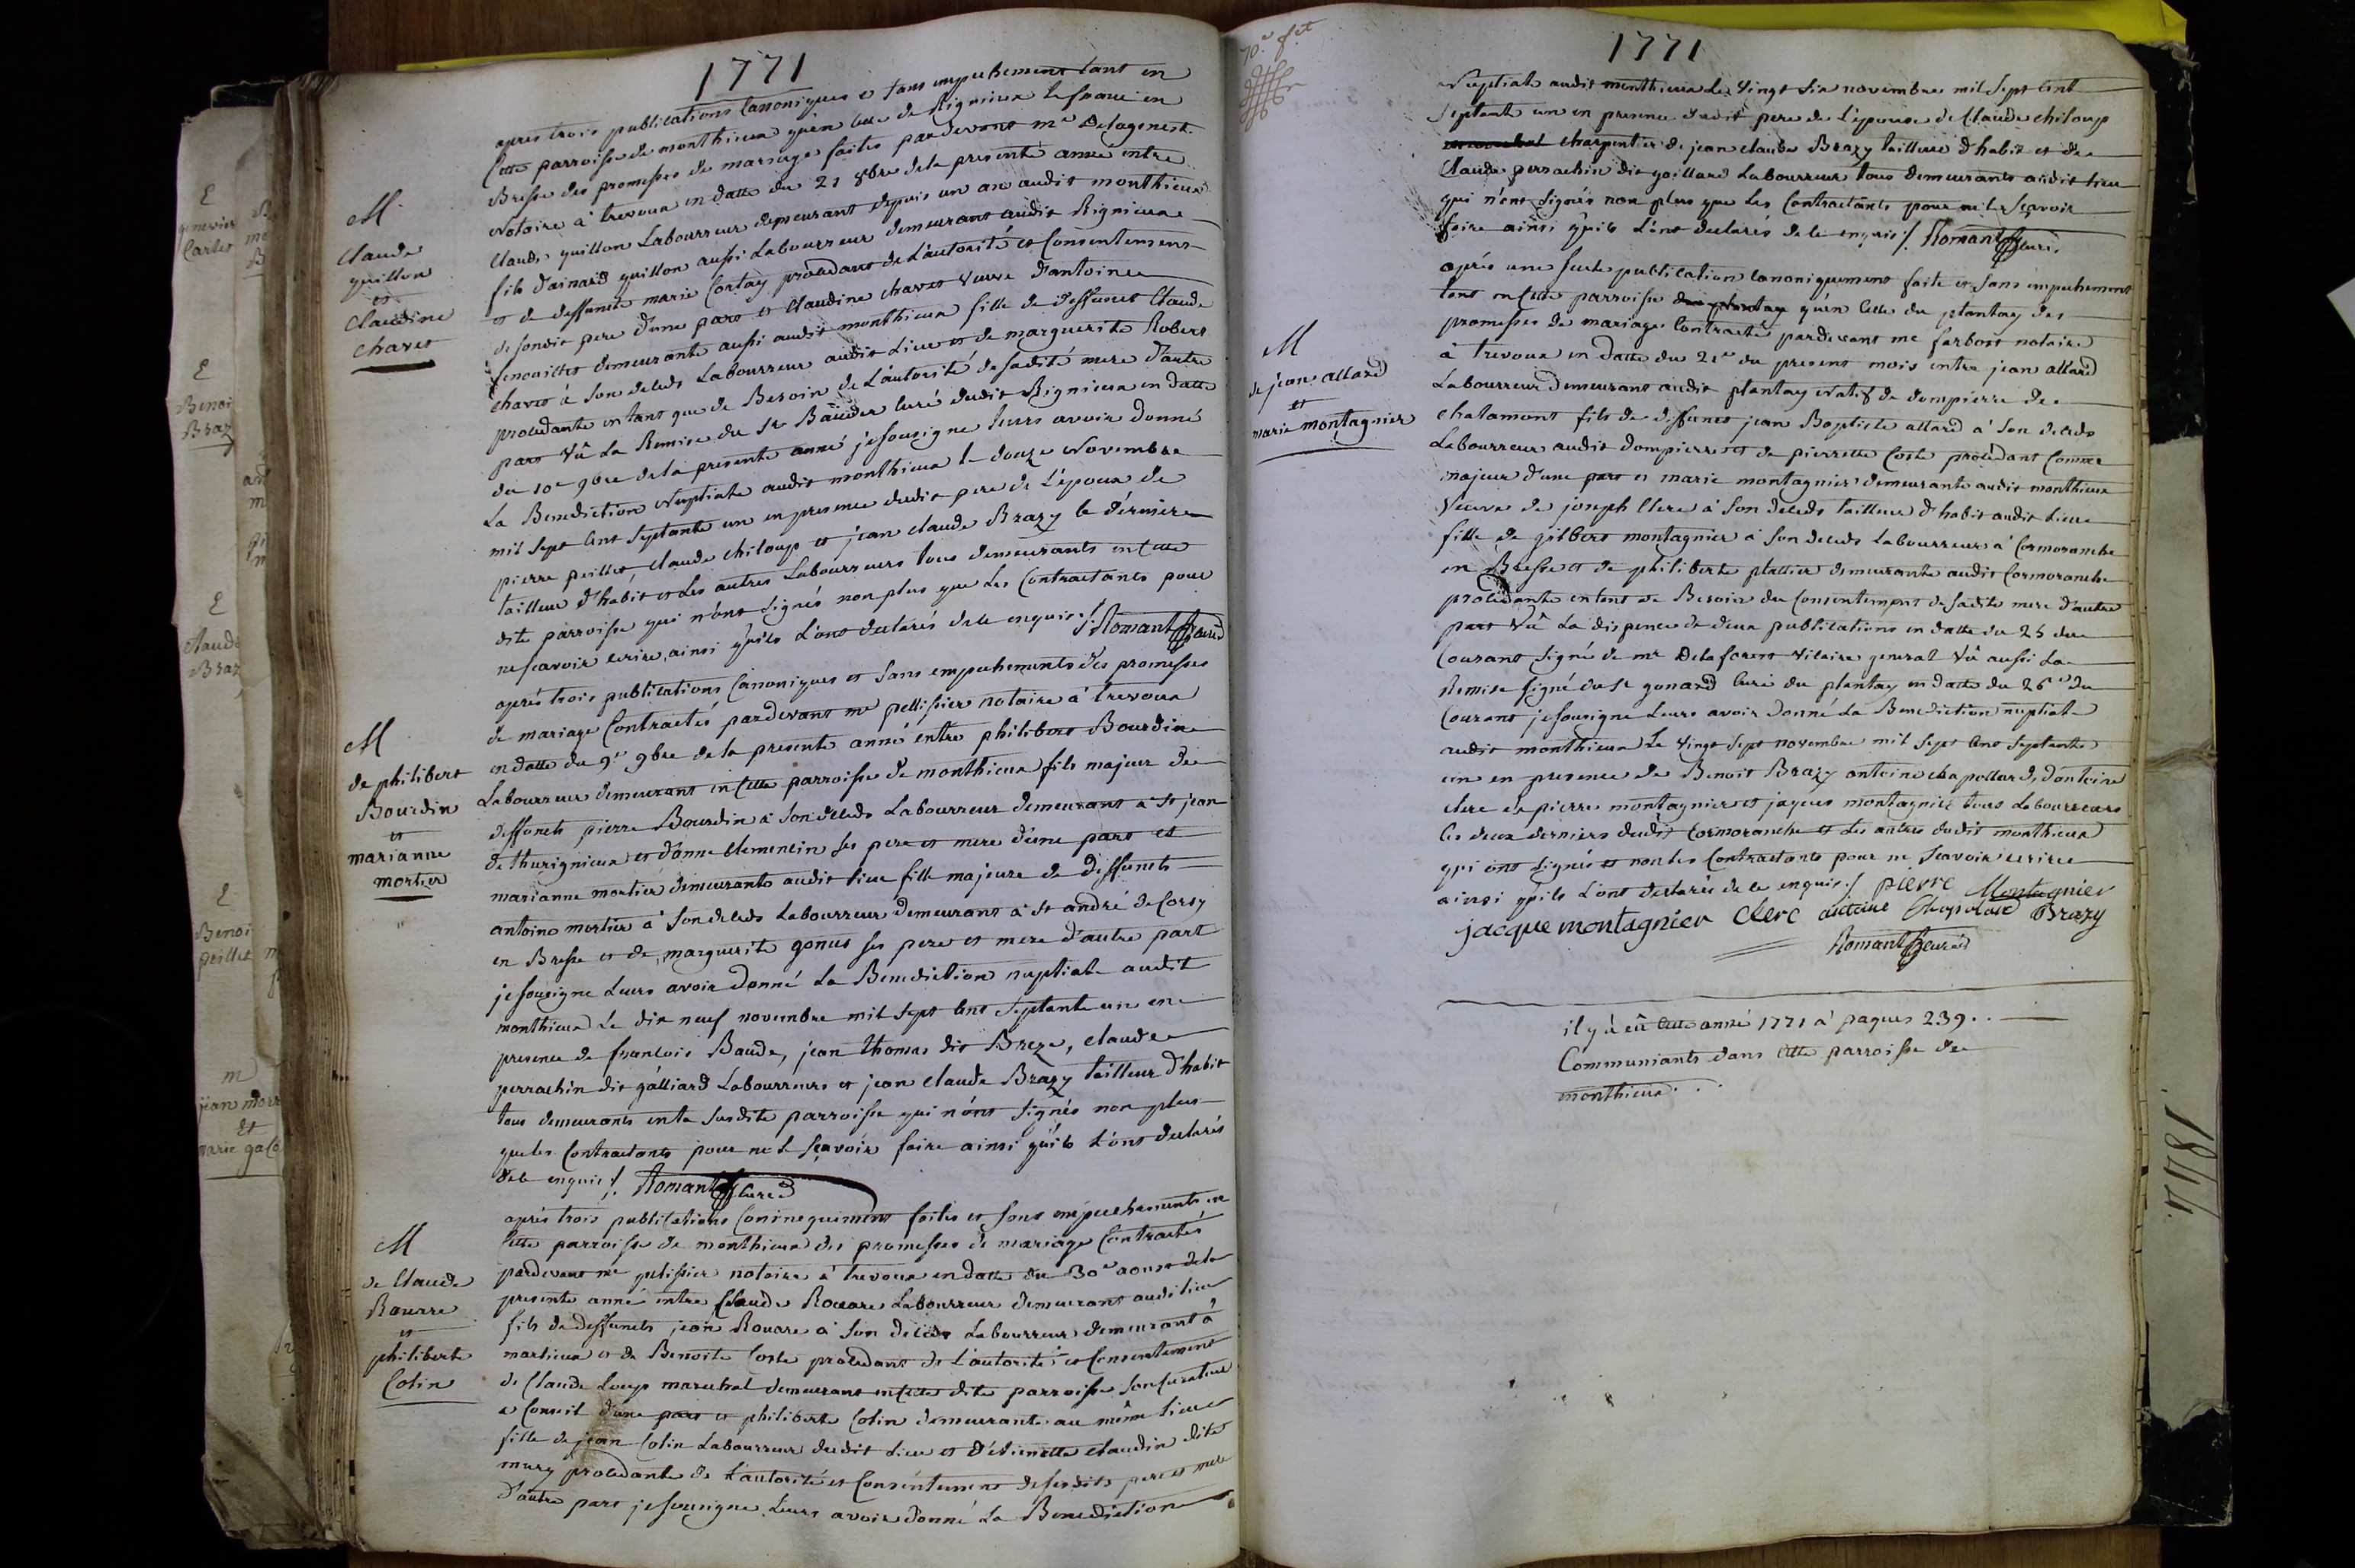 1771
après trois publications Canoniques et sans empechement tant en
Cette parroisse de monthieux qu'en celle de Rignieux le franc en
Bresse des promesses de mariage faites pardevant me Delagenest
Notoire à trevoux en datte du 21 8bre dela presente anné entre
Claude guillon Labourreur demeurant depuis un an audit monthieux
fils d'ainard guillon aussi Labourreur demeurant audit Rignieux
et de deffuncte marie Cortay procedant de L'autorité et Consentement
de sondit pere d'une part et Claudine chavet veuve d'antoine
demeurante aussi audit monthieux fille de deffunct Claude
chavet à son deceds Labourreur audit Lieu et de marguerite Robert
procedante en tant que de Besoin de L'autorité de sadite mere d'autre
part Vû La Remise du Sr Bauder curé dudit Rignieux en datte
du 10e 9bre de la presente anné je sousigne leurs avoir donné
La Benediction Nuptiale audit monthieux le douze Novembre
mil sept cent septante un en presence dudit pere de L'epoux de
pierre peillet, Claude chiloup et jean claude Brazy le dérnier
tailleur d'habit et Les autres Labourreurs tous demeurants en Cette
dite parroisse qui n'ont signés non plus que Les Contractants pour
ne scavoir ecrire, ainsi qu'ils L'ont declarés de ce enquis ./. Romant Curé
M
Claude
guillon
et
Claudine
chavet
après trois publications Canoniques et sans empechements des promesses
de mariage Contractés pardevant me pellissier notaire à trevoux
en datte du 9e 9bre de la presente anné entre philibert Bourdin
Labourreur demeurant en Cette parroisse de monthieux fils majeur de
deffuncts pierre Bourdin à son deceds Labourreur demeurant à st jean
de thurignieux et d'anne Clemencin ses pere et mere d'une part et
marianne mortier demeurante audit lieu fille majeure de deffuncts
antoine mortier à son deceds Labourreur demeurant à st andré de Corcy
en Bresse et de marguerite gonus ses pere et mere d'autre part
je sousigne Leurs avoir donné La Benediction nuptiale audit
monthieux Le dix neuf novembre mil sept cent septante un en
presence de francois Baude, jean thomas dit Breze, claude
perrachin dit gâlliard Labourreurs et jean claude Brazy tailleur d'habit
tous demeurants en la susdite parroisse qui n'ont signés non plus
que les Contractants pour ne L sçavoir faire ainsi qu'ils L'ont declarés
de ce enquis ./. Romant Curé
M
de philibert
Bourdin
et
marianne
mortier
après trois publications Canonequiment faites et sans empechements en
Cette parroisse de monthieux des promesses de mariage Contractés
pardevant me pelissier notoire à trevoux en datte du 30e aoust de la
presente anné entre Claude Rouare Labourreur demeurant audit lieu
fils de deffuncts jean Rouare à son deceds Labourreur demeurant à
marlieux et de Benoite Coste procedant de L'autorité et Consentement
de Claude Loup marechal demeurant en Cette dite parroisse son Curateur
et Conseil d'une part et philiberte Colin demeurante au même lieu
fille de jean Colin Labourreur dudit Lieu et d'etiennette claudin dite
mury procedante de L'autorité et Consentement de sesdits pere et mere
d'autre part je sousigne Leurs avoir donné La Benediction
M
de Claude
Rouare
et
philiberte
Colin
70e fet
1771
Nuptiale audit monthieux Le Vingt six novembre mil sept cent
septante un en presence dudit pere de L'epouse de Claude chiloup
charpentier de jean claude Brazy tailleur d'habit et de
Claude perrachin dit gaillard Labourreur tous demeurants audit lieu
qui n'ont signés non plus que Les Contractants pour ne le sçavoir
faire ainsi qu'ils L'ont declarés de ce enquis ./. Romant Curé
après une seule publication canoniquement faite et sans empechement
tant en Cette parroisse du plantay qu'en celle du plantay des
promesses de mariage Contracté pardevant me farbost notaire
à trevoux en datte du 21e du present mois entre jean allard
Labourreur demeurant audit plantay natif de dompierre de
chalamont fils de deffunct jean Baptiste allard à son deceds
Labourreur audit dompierre et de pierrette Coste procedant Comme
majeur d'une part et marie montagnier demeurante audit monthieux
Veuve de joseph Clerc à son deceds tailleur d'habit audit Lieu
fille de gilbert montagnier à son deceds Labourreur à Cormoranche
en Bresse et de philiberte plattier demeurante audit Cormoranche
procedante en tant de Besoin du Consentement de sadite mere d'autre
part Vû La dispence de deux publications en datte du 25 du
Courant signé de mr Delaforest Vicaire general Vû aussi La
Remise signé du sr gonard Curé du plantay en datte du 26e du
Courant je sousigne Leurs avoir donné La Benediction nuptiale
audit monthieux Le vingt sept novembre mil sept cent septante
un en presence de Benoit Brazy antoine chapollard, d'antoine
clerc de pierre montagnier et jaques montagnier tous Labourreurs
les deux derniers dudit Cormoranche et Les autres dudit monthieux
qui ont signés et non les Contractants pour ne sçavoir ecrire
ainsi qu'ils L'ont declarés de ce enquis ./. pierre Montagnier
jacque montagnier Clerc antoine Chapolard Brazy
Romant Curé
M
de jean allard
et
marie montagnier
il y à eû cette anné 1771 à paques 239..
Communiants dans Cette parroisse de
monthieux...
1844
E
genevier
Carlet
E
Benoi
Braz
E
claude
Braz
E
Benoi
peillet
m
jean mor
et
marie gaco